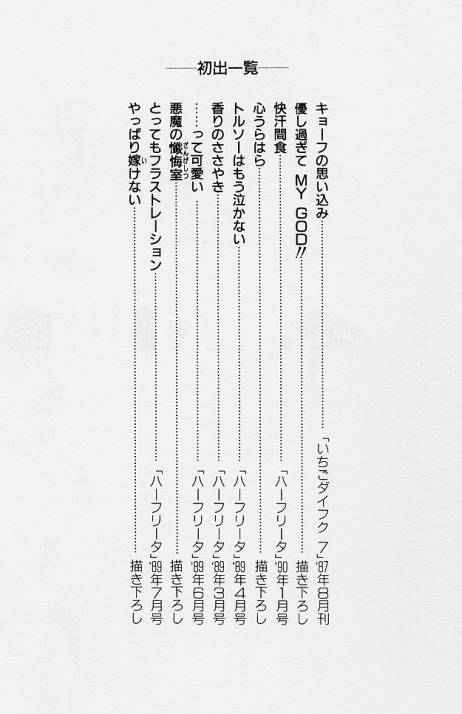 初出一覧
キョーフの思い込み「いちごダイフク 7」'87年8月刊
優し過ぎて MY GOD!!描き下ろし
快汗間食「ハーフリータ」'90年1月号
心うらはら描き下ろし
トルソーはもう泣かない「ハーフリータ」'89年4月号
香りのささやき「ハーフリータ」'89年3月号
……って可愛い「ハーフリータ」'89年6月号
悪魔の懺悔室ざんげしつ描き下ろし
とってもフラストレーション「ハーフリータ」'89年7月号
やっぱり嫁いけない描き下ろし